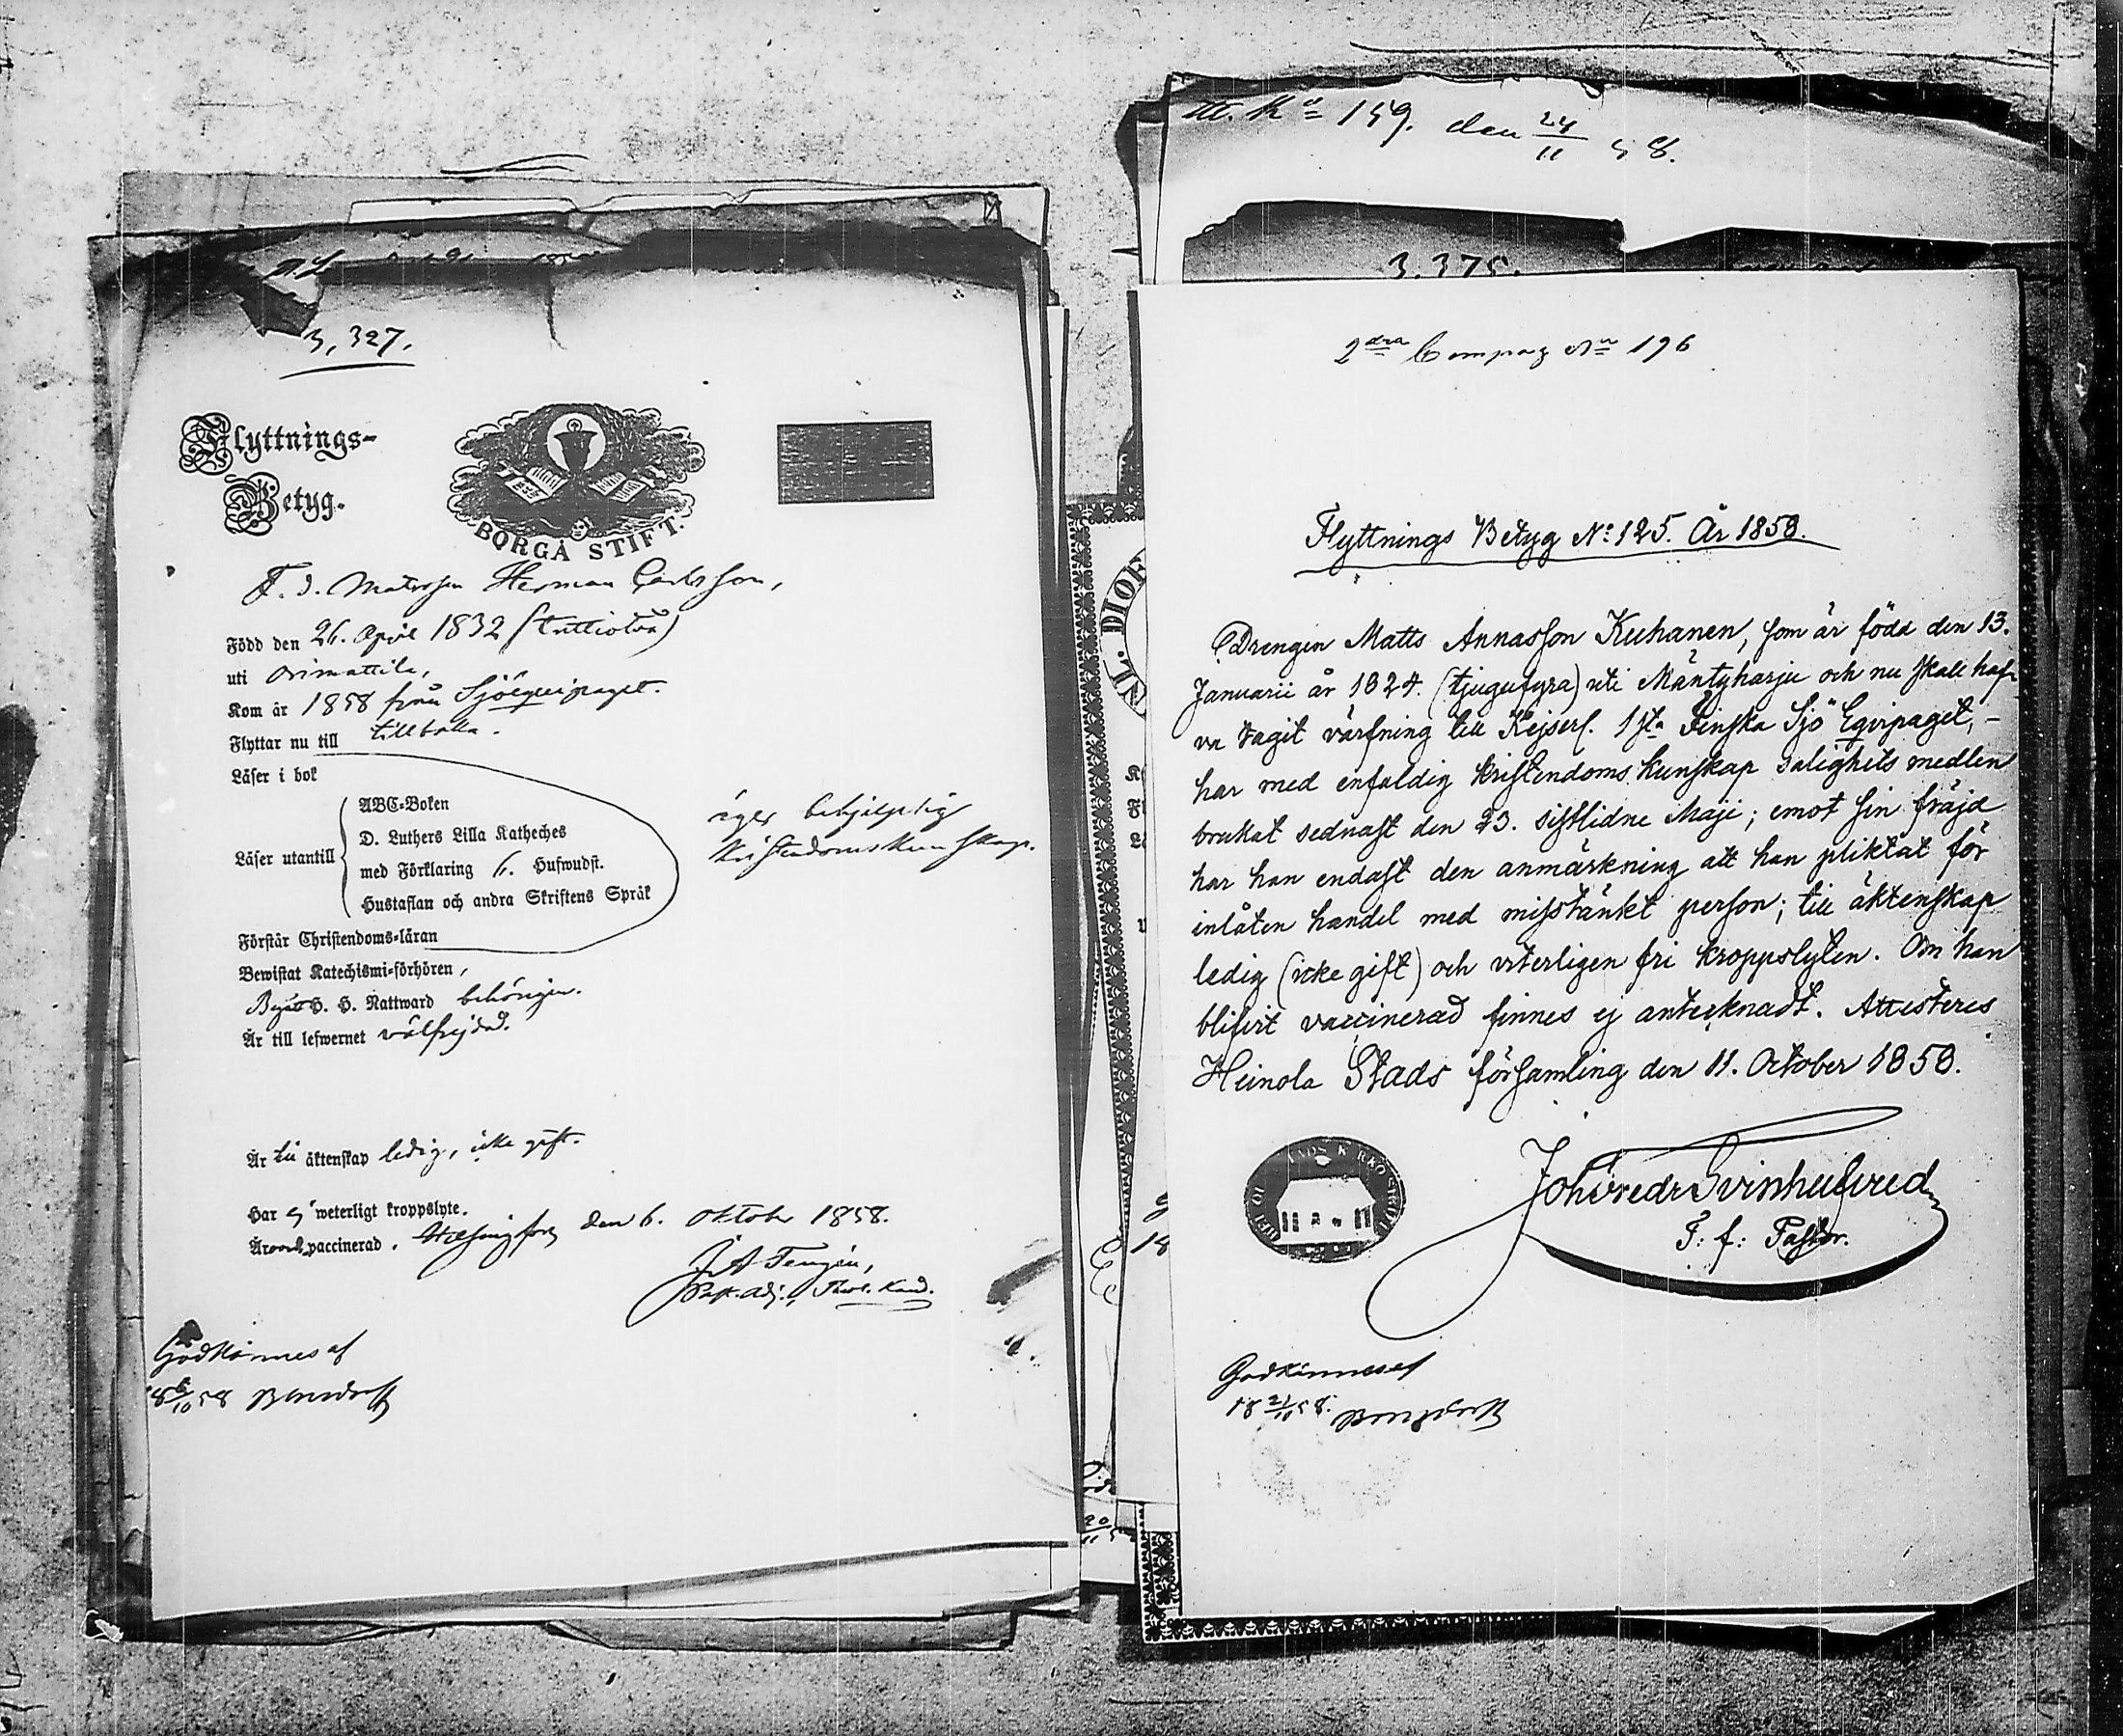 3,327.
Flyttnings-
Betyg.
BORGÅ STIFT.
F. d. Matrosen Herman Carlsson,
Född den 26. April 1832 (trettiotvå)
uti Orimattila,
Kom år 1858 från Sjöequipaget.
Flyttar nu till tillbaka.
Läser i bok
Läser utantill
ABC-Boken
D. Luthers Lilla Katheches
med Förklaring 6. Hufwudst.
Hustaflan och andra Skriftens Språk
äger behjelplig
Kristendomskunskap.
Förstår Christendoms-läran
Bewistat Katechismi-förhören,
H. H. Nattward behörigen.
Är till lefwernet välfrejdad.
Är till äktenskap ledig, icke gift.
Har ej weterligt kroppslyte.
Är vaccinerad. Helsingfors den 6. Oktober 1858.
Past. adj., Theol. Kand.
Godkännes af
18 6/10 58
159. den 24/11 58.
3.375.
2dra Compag No 196
Flyttnings Betyg No: 125. År 1858.
Drengen Matts Annasson Kuhanen, som är född den 13.
Januarii år 1824. (tjugufyra) uti Mäntyharju och nu skall haf-
va tagit värfning till Kejserl. 1sta Finska Sjö Eqvipaget, -
har med enfaldig kristendoms kunskap salighets medlen
brukat sednast den 23. sistlidne Maji; emot sin fräjd
har han endast den anmärkning att han pliktat för
inlåten handel med misstänkt person; till äktenskap
ledig (icke gift) och veterligen fri kroppslyten. Om han
blifvit vaccinerad finnes ej antecknadt. Attesteres
Heinola Stads församling den 11. October 1858.
Joh Fredr Svinhufvud
T. f. Pastor.
Godkännes af
18 21/10 58.